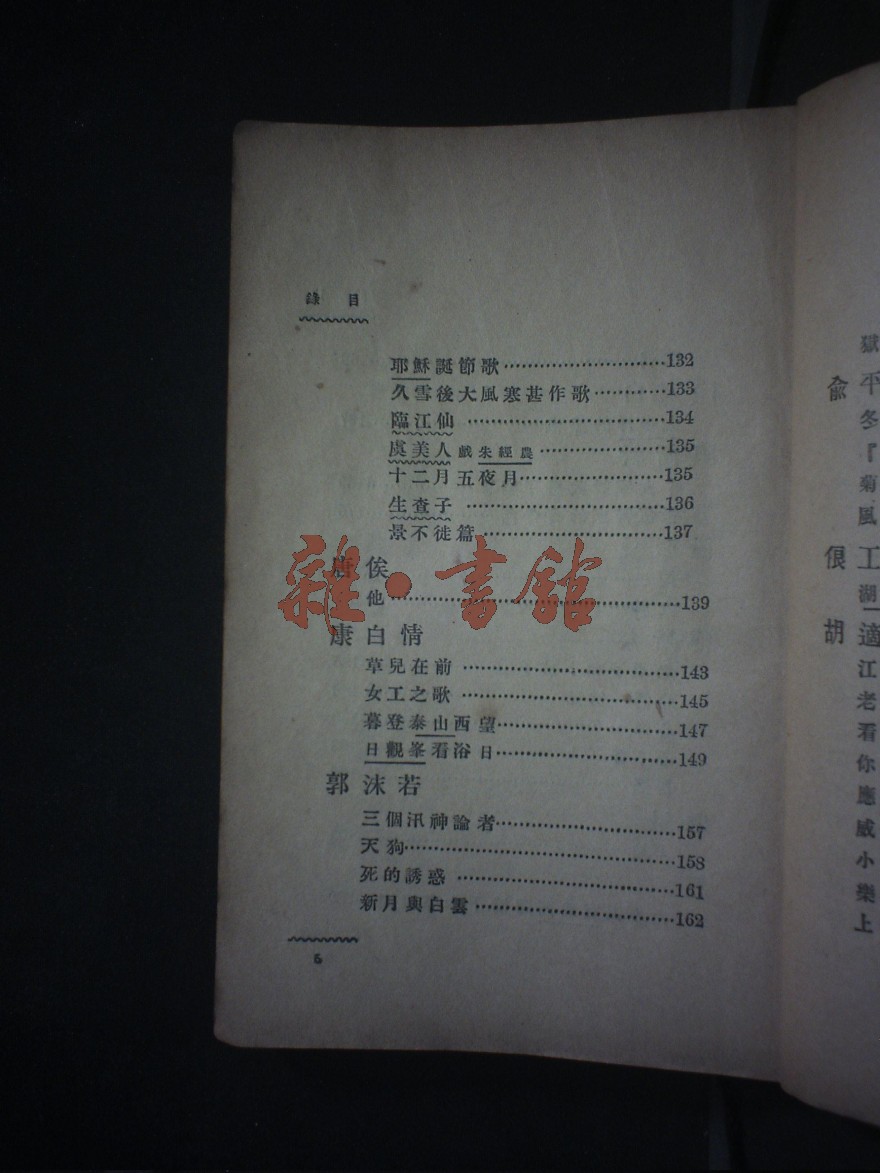 錄 目
耶穌誕節歌…………………………132
久雪後大風寒甚作歌…………………133
臨江仙…………………………134
虞美人 戲朱經農…………………135
十二月五夜月…………………………135
生查子…………………………136
景不徙篇…………………………137
唐俟
他…………………………139
康白情
草兒在前…………………………143
女工之歌…………………………145
暮登泰山西望…………………………147
日觀峯看浴日…………………………149
郭沫若
三個汎神論者…………………………157
天狗…………………………158
死的誘惑…………………………161
新月與白雲…………………………162
6
雜·書館
獄
俞 平
冬
『
菊
風
俍 工
湖
胡 適
江
老
看
你
應
威
小
樂
上